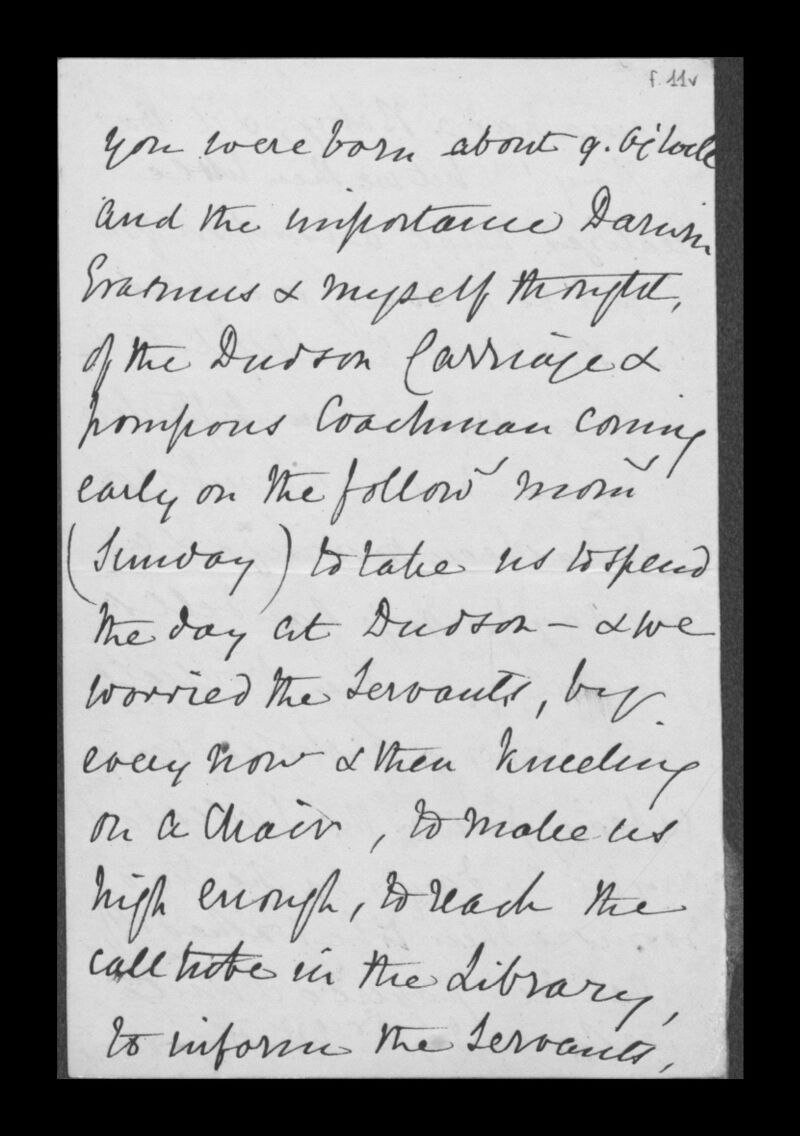 f. 11v
you were born about 9. O'Clock
and the importance Darwin
Erasmus & myself thought,
of the Dudson Carriage &
pompous Coachman coming
early on the follow' morn'
(Sunday) to take us to spend
the day at Dudson - & we
worried the Servants, by
every now & then kneeling
on a Chair, to make us
high enough, to reach the
call tube in the Library,
to inform the Servants,